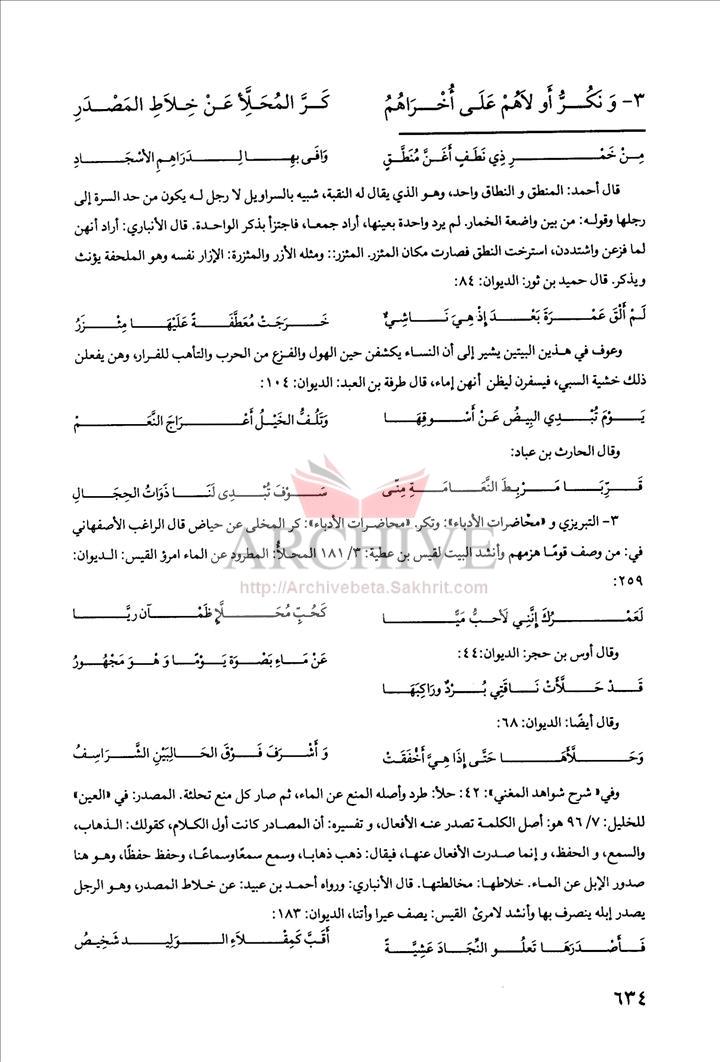 ٣- وَ نَكُرُّ أَو لاَهُمْ عَلَى أُخْرَاهُمُ كَرَّ المُحَلَّأِ عَنْ خِلاَطِ المَصْدَرِ
مِنْ خَمْرِ ذِي نَطَفٍ أَغَنَّ مُنَطَّقٍ وَافَى بِهَا لِدَرَاهِمِ الأَسْجَادِ
قال أحمد: المنطق و النطاق واحد، وهو الذي يقال له النقبة، شبيه بالسراويل لا رجل له يكون من حد السرة إلى
رجلها وقوله: من بين واضعة الخمار. لم يرد واحدة بعينها، أراد جمعا، فاجتزأ بذكر الواحدة. قال الأنباري: أراد أنهن
لما فزعن واشتددن، استرخت النطق فصارت مكان المئزر. المئزر:: ومثله الأزر والمئزرة: الإزار نفسه وهو الملحفة يؤنث
ويذكر. قال حميد بن ثور: الديوان: ٨٤:
لَمْ أَلْقَ عَمْرَةَ بَعْدَ إِذْ هِيَ نَاشِيٌ خَرَجَتْ مُعَطَّفَةً عَلَيْهَا مِئْزَرُ
وعوف في هذين البيتين يشير إلى أن النساء يكشفن حين الهول والفزع من الحرب والتأهب للفرار، وهن يفعلن
ذلك خشية السبي، فيسفرن ليظن أنهن إماء، قال طرفة بن العبد: الديوان: ١٠٤:
يَوْمَ تُبْدِي البِيضُ عَنْ أَسْوِقِهَا وَتَلُفُّ الخَيْلُ أَعْرَاجَ النَّعَمْ
وقال الحارث بن عباد:
قَرِّبَا مَرْبِطَ النَّعَامَةِ مِنِّي سَوْفَ تُبْدِى لَنَا ذَوَاتُ الحِجَالِ
٣- التبريزي و «محاضرات الأدباء»: وتكر. «محاضرات الأدباء»: كر المخلى عن حياض قال الراغب الأصفهاني
في: من وصف قومًا هزمهم وأنشد البيت لقيس بن عطية: ٣/ ١٨١ المحلأُ: المطرود عن الماء امرؤ القيس: الديوان:
٢٥٩:
لَعَمْرُكَ إِنَّنِي لَأحبُّ مَيَّا كَحُبِّ مُحَلَّإٍ ظَمْآن رِيَّا
وقال أوس بن حجر: الديوان:٤٤:
قَدْ حَلَّأَتْ نَاقَتِي بُرْدٌ وَرَاكِبَهَا عَنْ مَاءِ بَصْوَةَ يَوْمًا وَ هْوَ مَجْهُورُ
وقال أيضًا: الديوان: ٦٨:
وَحَلَّأَهَا حَتَّى إِذَا هِيَ أَخْفَقَتْ وَ أَشْرَفَ فَوْقَ الحَالِبَيْنِ الشَّرَاسِفُ
وفي« شرح شواهد المغني»: ٤٢: حلأ: طرد وأصله المنع عن الماء، ثم صار كل منع تحلئة. المصدر: في «العين»
للخليل: ٧/ ٩٦ هو: أصل الكلمة تصدر عنه الأفعال، و تفسيره: أن المصادر كانت أول الكلام، كقولك: الذهاب،
والسمع، و الحفظ، و إنما صدرت الأفعال عنها، فيقال: ذهب ذهابا، وسمع سمعًا وسماعًا، وحفظ حفظًا، وهو هنا
صدور الإبل عن الماء. خلاطها: مخالطتها. قال الأنباري: ورواه أحمد بن عبيد: عن خلاط المصدر، وهو الرجل
يصدر إبله ينصرف بها وأنشد لامرئ القيس: يصف عيرا وأتنا، الديوان: ١٨٣:
فَأَصْدَرَهَا تَعلُو النِّجَادَ عَشِيَّةً أَقَبَّ كَمِقْلَاءِ الوَلِيدِ شَخِيصُ
٦٣٤
ARCHIVE
http://Archivebeta.Sakhrit.com